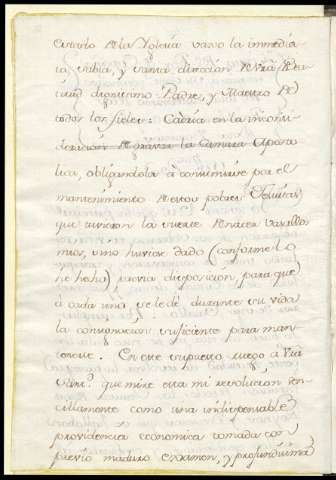 Estado de la Yglesia vaxo la immedia
ta, sabia, y santa direccion de Vrā Bea
titud dignisimo Padre, y Maestro de
todos los fieles: Caeria en la inconsi-
deracion de gravar la Camara Aposto
lica, obligandola à consumirse por el
mantenimiento de estos pobres Jesuitas
que tuvieron la suerte de nacer vasallos
mios, sino huviese dado (conforme lo
he hecho) previa disposicion, para que
à cada uno, se le dé durante su vida
la consignacion suficiente para man-
tenerse. En este supuesto ruego à Vrā
que mire esta mi resolucion sen-
cillamente como una indispensable
providencia economica tomada con
previo maduro examen, y profundisima